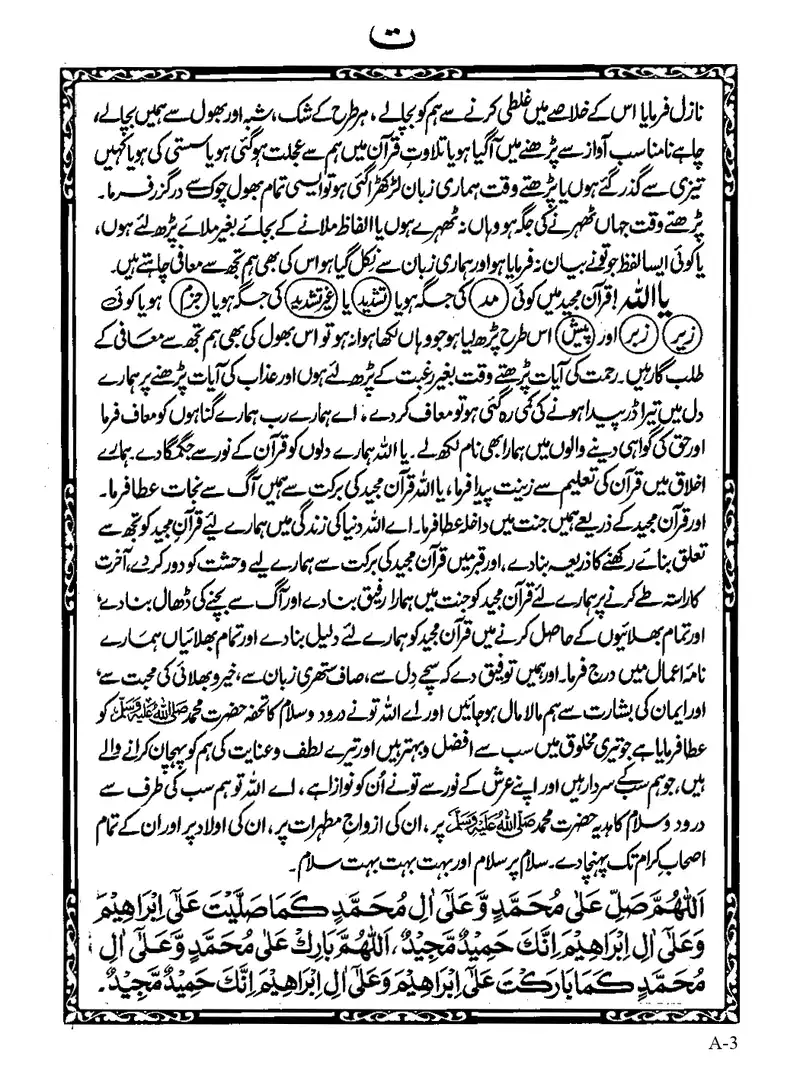 ت
نازل فرمایا اس کے خلاصے میں غلطی کرنے سے ہم کو بچالے، ہر طرح کے شک، شبہ اور بھول سے ہمیں بچالے،
چاہے نامناسب آواز سے پڑھنے میں آگیا ہو یا تلاوتِ قرآن میں ہم سے عجلت ہوگئی ہو یا سستی کی ہو یا کہیں
تیزی سے گذر گئے ہوں یا پڑھتے وقت ہماری زبان لڑکھڑا گئی ہو تو ایسی تمام بھول چوک سے درگزر فرما۔
پڑھتے وقت جہاں ٹھہرنے کی جگہ ہو وہاں نہ ٹھہرے ہوں یا الفاظ ملانے کے بجائے بغیر ملائے پڑھ لئے ہوں،
یا کوئی ایسا لفظ جو تو نے بیان نہ فرمایا ہو اور ہماری زبان سے نکل گیا ہو اس کی بھی ہم تجھ سے معافی چاہتے ہیں۔
یا اللہ! قرآن مجید میں کوئی مد کی جگہ ہو یا تشدید یا غیر تشدید کی جگہ ہو یا جزم ہو یا کوئی
زیر زبر اور پیش اس طرح پڑھ لیا ہو جو وہاں لکھا ہوا نہ ہو تو اس بھول کی بھی ہم تجھ سے معافی کے
طلب گار ہیں۔ رحمت کی آیات پڑھتے وقت بغیر رغبت کے پڑھ لئے ہوں اور عذاب کی آیات پڑھنے پر ہمارے
دل میں تیرا ڈر پیدا ہونے کی کمی رہ گئی ہو تو معاف کردے، اے ہمارے رب ہمارے گناہوں کو معاف فرما
اور حق کی گواہی دینے والوں میں ہمارا بھی نام لکھ لے۔ یا اللہ ہمارے دلوں کو قرآن کے نور سے جگمگا دے۔ ہمارے
اخلاق میں قرآن کی تعلیم سے زینت پیدا فرما، یا اللہ قرآن مجید کی برکت سے ہمیں آگ سے نجات عطا فرما۔
اور قرآن مجید کے ذریعے ہمیں جنت میں داخلہ عطا فرما۔ اے اللہ دنیا کی زندگی میں ہمارے لئے قرآن مجید کو تجھ سے
تعلق بنائے رکھنے کا ذریعہ بنادے، اور قبر میں قرآن مجید کی برکت سے ہمارے لیے وحشت کو دور کردے، آخرت
کا راستہ طے کرنے پر ہمارے لئے قرآن مجید کو جنت میں ہمارا رفیق بنادے اور آگ سے بچنے کی ڈھال بنادے،
اور تمام بھلائیوں کے حاصل کرنے میں قرآن مجید کو ہمارے لئے دلیل بنادے اور تمام بھلائیاں ہمارے
نامۂ اعمال میں درج فرما۔ اور ہمیں توفیق دے کہ سچے دل سے، صاف ستھری زبان سے، خیر و بھلائی کی محبت سے،
اور ایمان کی بشارت سے ہم مالا مال ہوجائیں اور اے اللہ تو نے درود و سلام کا تحفہ حضرت محمد صلی اللہ علیہ وسلم کو
عطا فرمایا ہے جو تیری مخلوق میں سب سے افضل و بہتر ہیں اور تیرے لطف و عنایت کی ہم کو پہچان کرانے والے
ہیں، جو ہم سب کے سردار ہیں اور اپنے عرش کے نور سے تو نے اُن کو نوازا ہے، اے اللہ تو ہم سب کی طرف سے
درود و سلام کا ہدیہ حضرت محمد صلی اللہ علیہ وسلم پر، ان کی ازواجِ مطہرات پر، ان کی اولاد پر اور ان کے تمام
اصحاب کرام تک پہنچا دے۔ سلام پر سلام اور بہت بہت بہت سلام۔
اَللّٰهُمَّ صَلِّ عَلٰى مُحَمَّدٍ وَّعَلٰٓى اٰلِ مُحَمَّدٍ كَمَا صَلَّيْتَ عَلٰٓى اِبْرَاهِيْمَ
وَعَلٰٓى اٰلِ اِبْرَاهِيْمَ اِنَّكَ حَمِيْدٌ مَّجِيْدٌ، اَللّٰهُمَّ بَارِكْ عَلٰى مُحَمَّدٍ وَّعَلٰٓى اٰلِ
مُحَمَّدٍ كَمَا بَارَكْتَ عَلٰٓى اِبْرَاهِيْمَ وَعَلٰٓى اٰلِ اِبْرَاهِيْمَ اِنَّكَ حَمِيْدٌ مَّجِيْدٌ۔
A-3